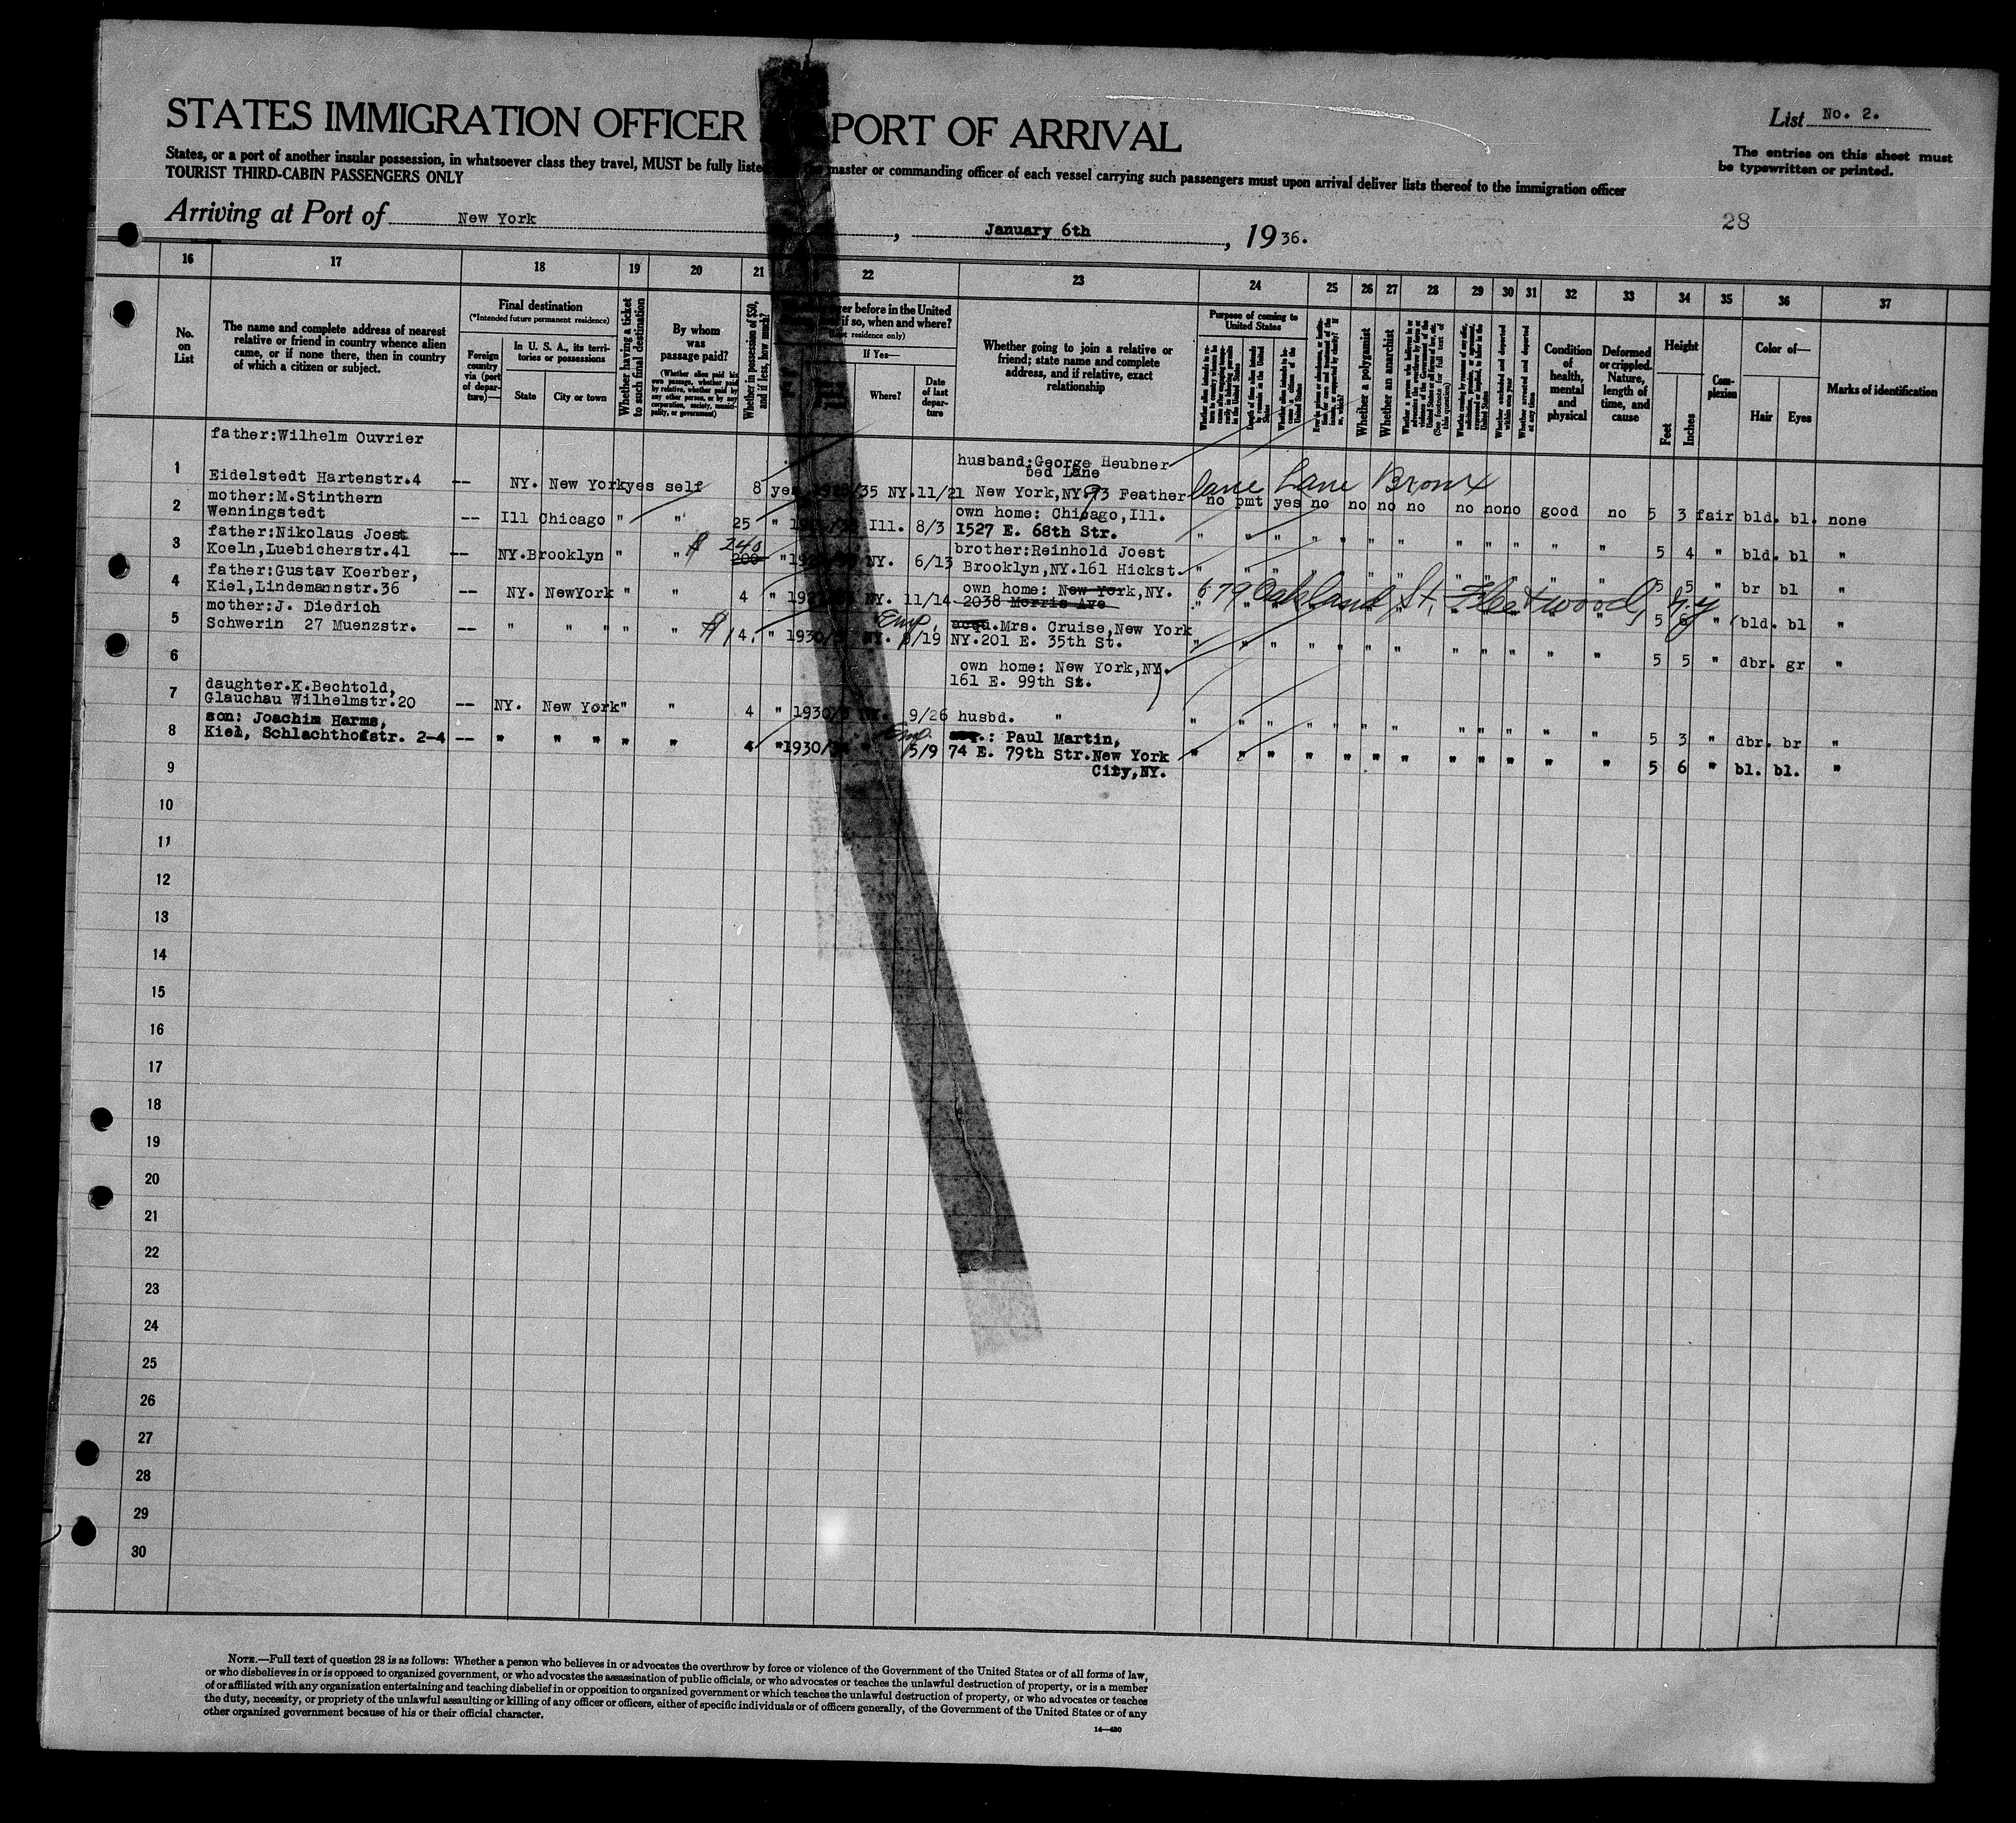 STATES IMMIGRATION OFFICER PORT OF ARRIVAL
List No. 2.
The entries on this sheet must
be typewritten or printed.
States, or a port of another insular possession, in whatsoever class they travel, MUST be fully liste master or commanding officer of each vessel carrying such passengers must upon arrival deliver lists thereof to the immigration officer
TOURIST THIRD-CABIN PASSENGERS ONLY
Arriving at Port of New York, January 6th, 1936.
28
16 17 18 19 20 21 22 23 24 25 26 27 28 29 30 31 32 33 34 35 36 37
No. on List
The name and complete address of nearest
relative or friend in country whence alien
came, or if none there, then in country
of which a citizen or subject.
Final destination
(*Intended future permanent residence)
Foreign country via (port of departure)—
In U. S. A., its territories or possessions
State
City or town
Whether having a ticket to such final destination
By whom was passage paid?
(Whether alien paid his own passage, whether paid by relative, whether paid by any other person, or by any corporation, society, municipality, or government)
Whether in possession of $50, and if less, how much?
er before in the United
if so, when and where?
residence only)
If Yes—
Where?
Date of last departure
Whether going to join a relative or
friend; state name and complete
address, and if relative, exact
relationship
Purpose of coming to United States
Whether a polygamist
Whether an anarchist
(See footnote for full text of this question)
Whether arrested and deported at any time
Condition of health, mental and physical
Deformed or crippled. Nature, length of time, and cause
Height
Feet
Inches
Complexion
Color of—
Hair
Eyes
Marks of identification
father:Wilhelm Ouvrier
1 Eidelstedt Hartenstr.4 -- NY. New York yes self 8 yes /35 NY. 11/21 husband:George Heubner
bed Lane
New York,NY. 73 Feather lane Lane Bronx
no pmt yes no no no no no no no good no 5 3 fair bld. bl. none
mother:M.Stinthern
2 Wenningstedt -- Ill Chicago " " 25 " Ill. 8/3 own home: Chicago,Ill.
1527 E. 68th Str. " " " " " " " " " " " " 5 4 " bld. bl "
father:Nikolaus Joest
3 Koeln,Luebicherstr.41 -- NY. Brooklyn " " $ 240 200 " NY. 6/13 brother:Reinhold Joest
Brooklyn,NY.161 Hickst. " " " " " " " " " " " " 5 5 " br bl "
father:Gustav Koerber,
4 Kiel,Lindemannstr.36 -- NY. NewYork " " 4 " NY. 11/14 own home: New York,NY.
2038 Morris Ave 679 Oakland St, Fleetwood, N.Y
5 6 " bld. bl "
mother:J. Diedrich
5 Schwerin 27 Muenzstr. -- " " " " " $ 14. " 1930/ NY. /19 Emp. acqu.Mrs. Cruise,New York
NY.201 E. 35th St. " " " " " " " " " " " 5 5 " dbr. gr "
6 own home: New York,NY.
161 E. 99th St.
daughter.K.Bechtold,
7 Glauchau Wilhelmstr.20 -- NY. New York" " 4 " 1930/ NY. 9/26 husbd. " " " " " " " " " " " " " 5 3 " dbr. br "
son: Joachim Harms,
8 Kiel, Schlachthofstr. 2-4 -- " " " " " " 4 "1930/ 5/9 Emp. : Paul Martin,
74 E. 79th Str.New York
City,NY. " " " " " " " " " " " " 5 6 " bl. bl. "
9
10
11
12
13
14
15
16
17
18
19
20
21
22
23
24
25
26
27
28
29
30
NOTE.—Full text of question 28 is as follows: Whether a person who believes in or advocates the overthrow by force or violence of the Government of the United States or of all forms of law,
or who disbelieves in or is opposed to organized government, or who advocates the assassination of public officials, or who advocates or teaches the unlawful destruction of property, or is a member
of or affiliated with any organization entertaining and teaching disbelief in or opposition to organized government or which teaches the unlawful destruction of property, or who advocates or teaches
the duty, necessity, or propriety of the unlawful assaulting or killing of any officer or officers, either of specific individuals or of officers generally, of the Government of the United States or of any
other organized government because of his or their official character.
14—480